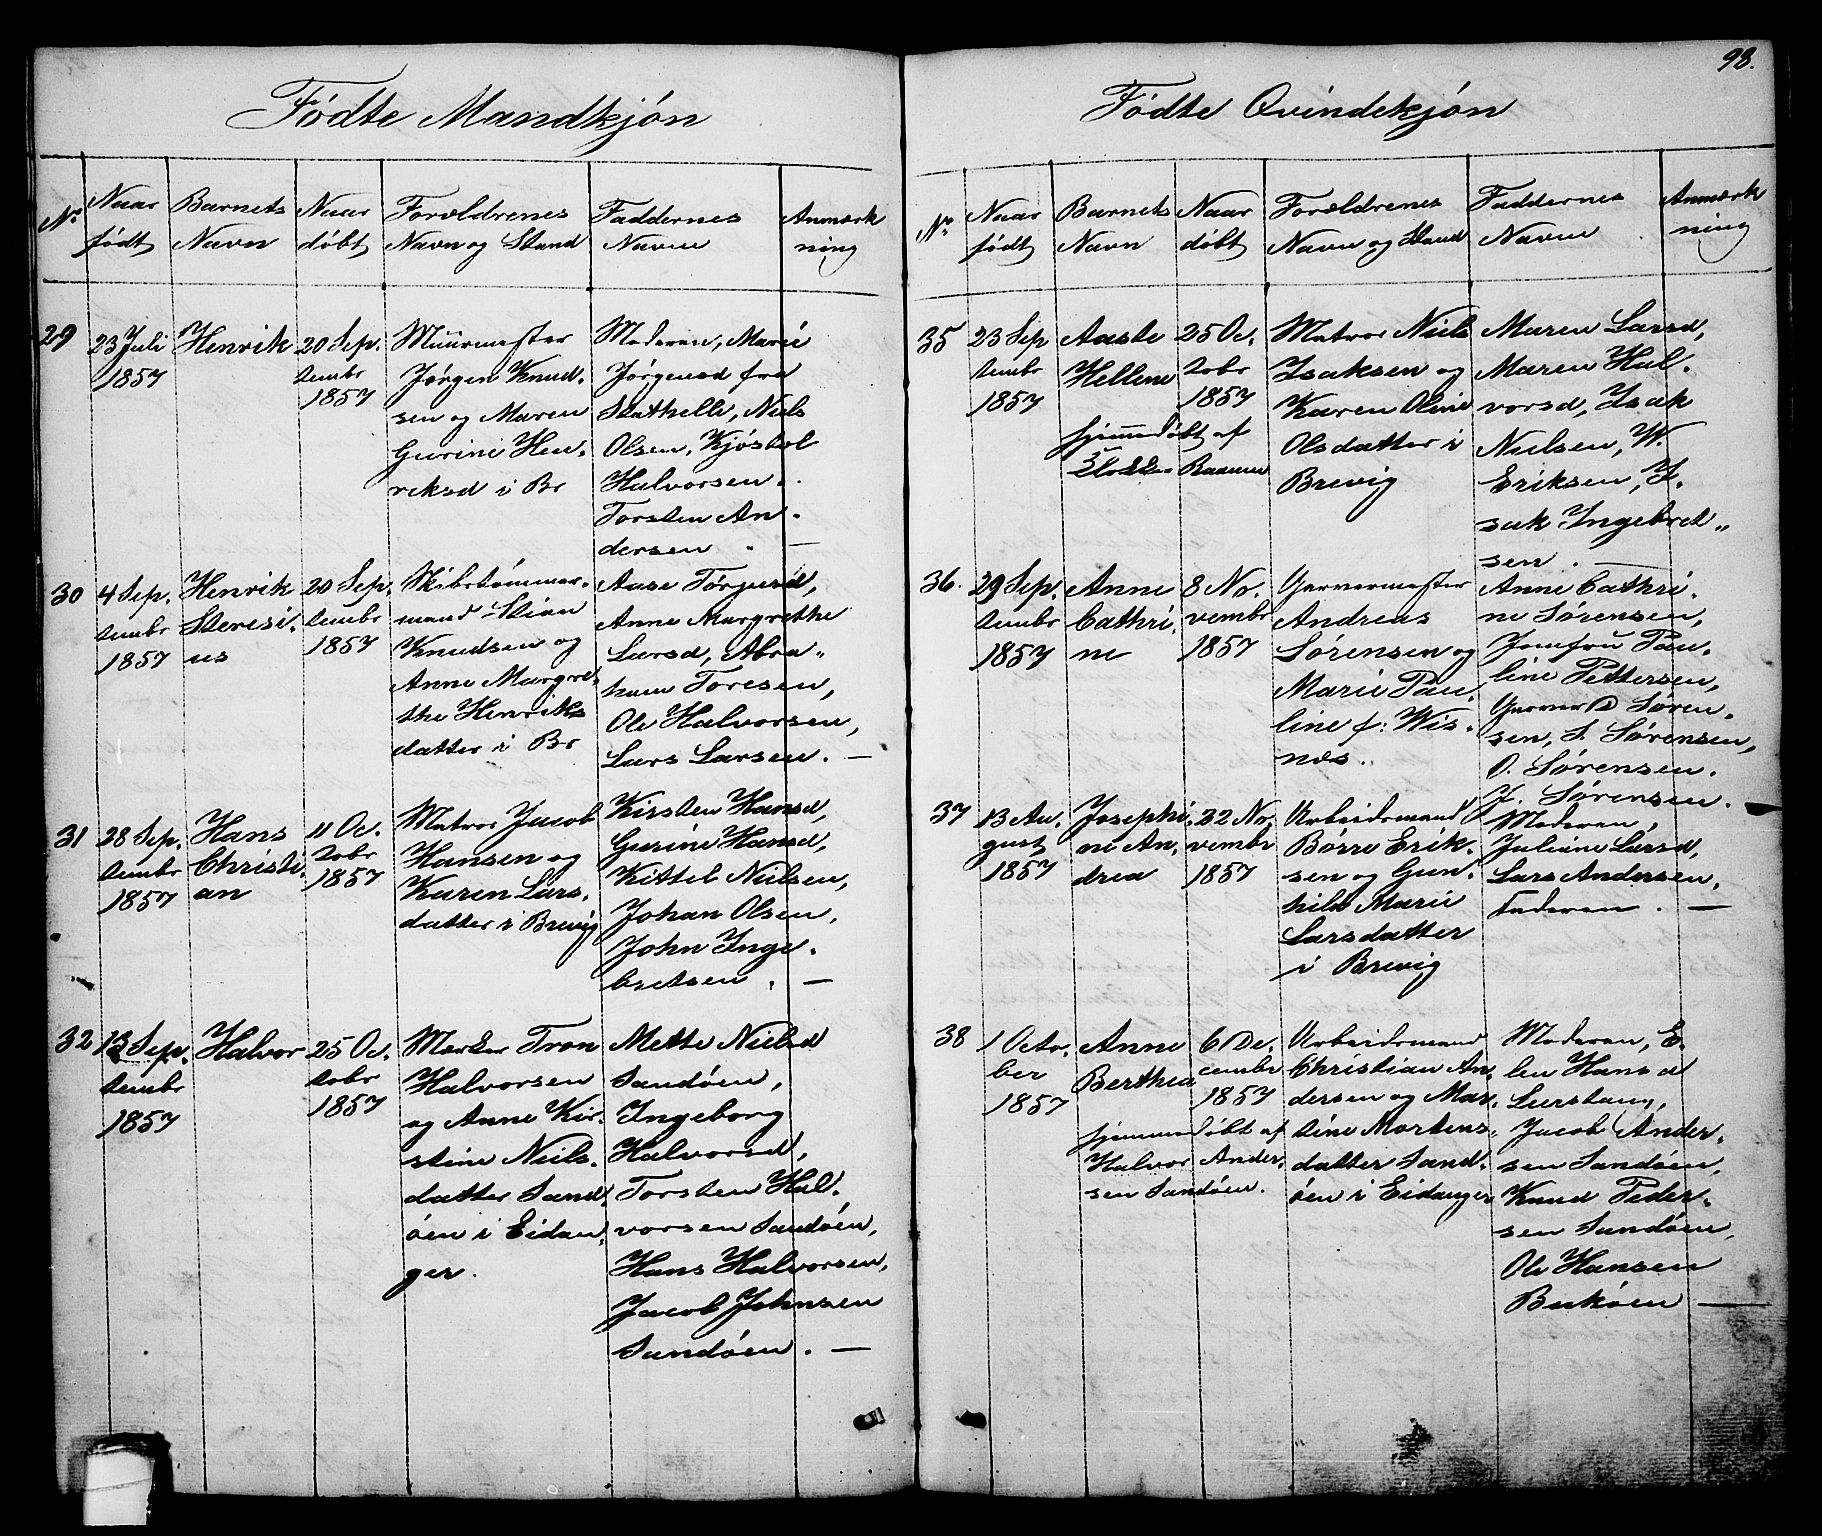 98.
Födte Mandkjön
No
Naar
födt
Barnets
Navn
Naar
döbt
Forældrenes
Navn og Stand
Faddernes
Navne
Anmærk
ning
29
23 Juli
1857
Henrik
20 Sep.
tembr
1857
Muurmester
Jørgen Knud-
sen og Maren
Gurine Hen-
riksd i Br
Moderen, Marie
Jørgensd fra
Stathelle, Niels
Olsen, Kjöstol
Halvorsen.
Torsten An-
dersen . —
30
4 Sep.
tembr
1857
Henrik
Steresi-
us
20 Sep.
tembr
1857
Skibstömmer-
mand Stian
Knudsen og
Anne Margre-
the Henriks
datter i Br
Aase Törgersd,
Anne Margrethe
Larsd, Abra-
ham Toresen,
Ole Halvorsen,
Lars Larsen. —
31
28 Sep.
tembr
1857
Hans
Christi-
an
11 Oc.
tobr
1857
Matros Jacob
Hansen og
Karen Lars-
datter i Brevig
Kirsten Hansd,
Gurine Hansd,
Kittel Nielsen,
Johan Olsen,
John Inge-
bretsen . —
32
13 Sep.
tembr
1857
Halvor
25 Oc.
tobr
1857
Tron
Halvorsen
og Anne Kir-
stine Niels-
datter Sand-
öen i Eidan-
ger.
Mette Nielsd
Sandöen,
Ingeborg
Halvorsd,
Torsten Hal-
vorsen Sandöen,
Hans Halvorsen,
Jacob Johnsen
Sandöen. —
Födte Qvindekjön
No
Naar
födt
Barnets
Navn
Naar
döbt
Forældrenes
Navn og Stand
Faddernes
Navne
Anmærk
ning
35
23 Sep
tembr
1857
Aaste
Hellene
hjemmedöbt af
Raanum
25 Oc.
tobr
1857
Matros Niels
Isaksen og
Karen Oline
Olsdatter i
Brevig
Maren Larsd,
Maren Hal-
vorsd, Isak
Nielsen, W.
Eriksen, I-
sak Ingebret„
sen . —
36.
29 Sep.
tembr
1857
Anne
Cathri-
ne
8 No.
vembr
1857
Garvermester
Andreas
Sørensen og
Marie Pau-
line f: Wis-
næs.
Anne Cathri-
ne Sørensen,
Jomfru Pau-
line Pettersen,
Garver D Søren-
sen, S. Sørensen,
O. Sørensen.
J. Sørensen.
37
13 Au-
gust
1857
Josephi-
ne An-
drea
22 No.
vembr
1857
Arbeidsmand
Börre Erik-
sen og Gun-
hild Marie
Larsdatter
i Brevig
Moderen,
Juliane Larsd,
Lars Andersen,
Faderen . —
38
1 Octo-
ber
1857
Anne
Berthea
hjemmedöbt af
Halvor Ander-
sen Sandöen.
6 De.
cembr
1857
Arbeidsmand
Christian An-
dersen og Mar-
tine Mortens-
datter Sand-
öen i Eidanger
Moderen, E-
len Hansd
Lerstang,
Jacob Ander-
sen Sandöen,
Knud Peder-
sen Sandöen,
Ole Hansen
Buköen —